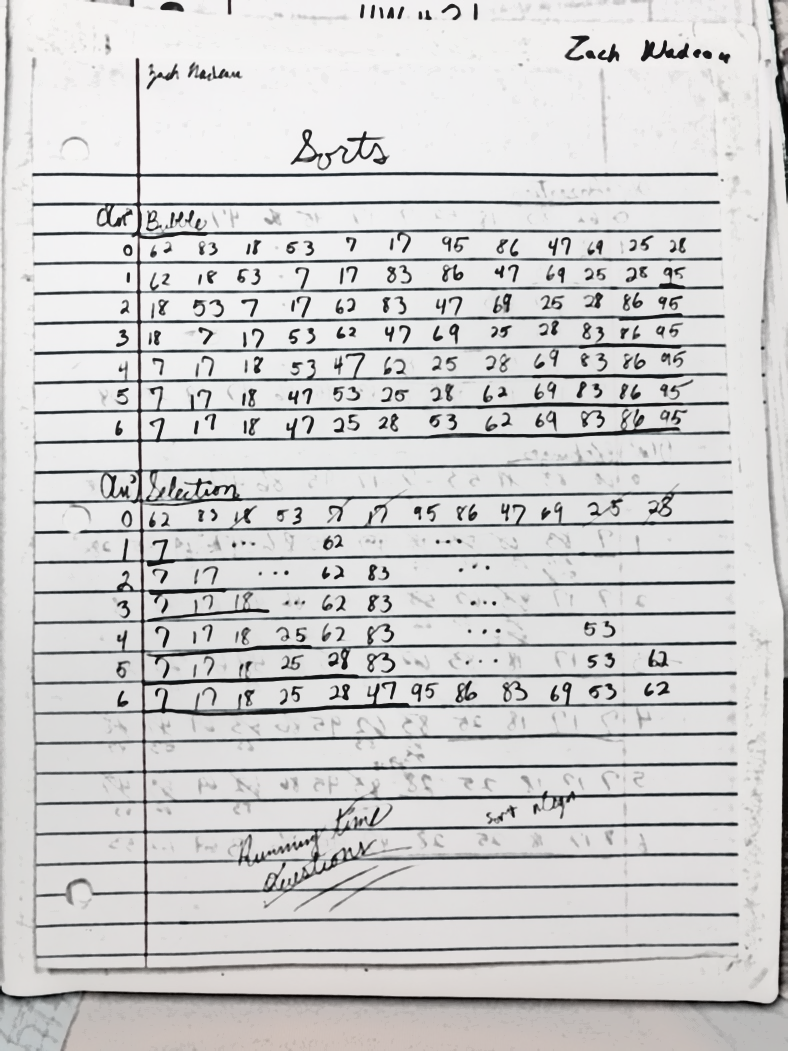 HW # 21
Zach Nadeau
Zach Nadeau
Sorts
O(n²) Bubble
0 62 83 18 53 7 17 95 86 47 69 25 28
1 62 18 53 7 17 83 86 47 69 25 28 95
2 18 53 7 17 62 83 47 69 25 28 86 95
3 18 7 17 53 62 47 69 25 28 83 86 95
4 7 17 18 53 47 62 25 28 69 83 86 95
5 7 17 18 47 53 25 28 62 69 83 86 95
6 7 17 18 47 25 28 53 62 69 83 86 95
O(n²) Selection
0 62 83 18 53 7 17 95 86 47 69 25 28
1 7 ... 62 ...
2 7 17 ... 62 83 ...
3 7 17 18 ... 62 83 ...
4 7 17 18 25 62 83 ... 53
5 7 17 18 25 28 83 ... 53 62
6 7 17 18 25 28 47 95 86 83 69 53 62
Running time sort
Questions